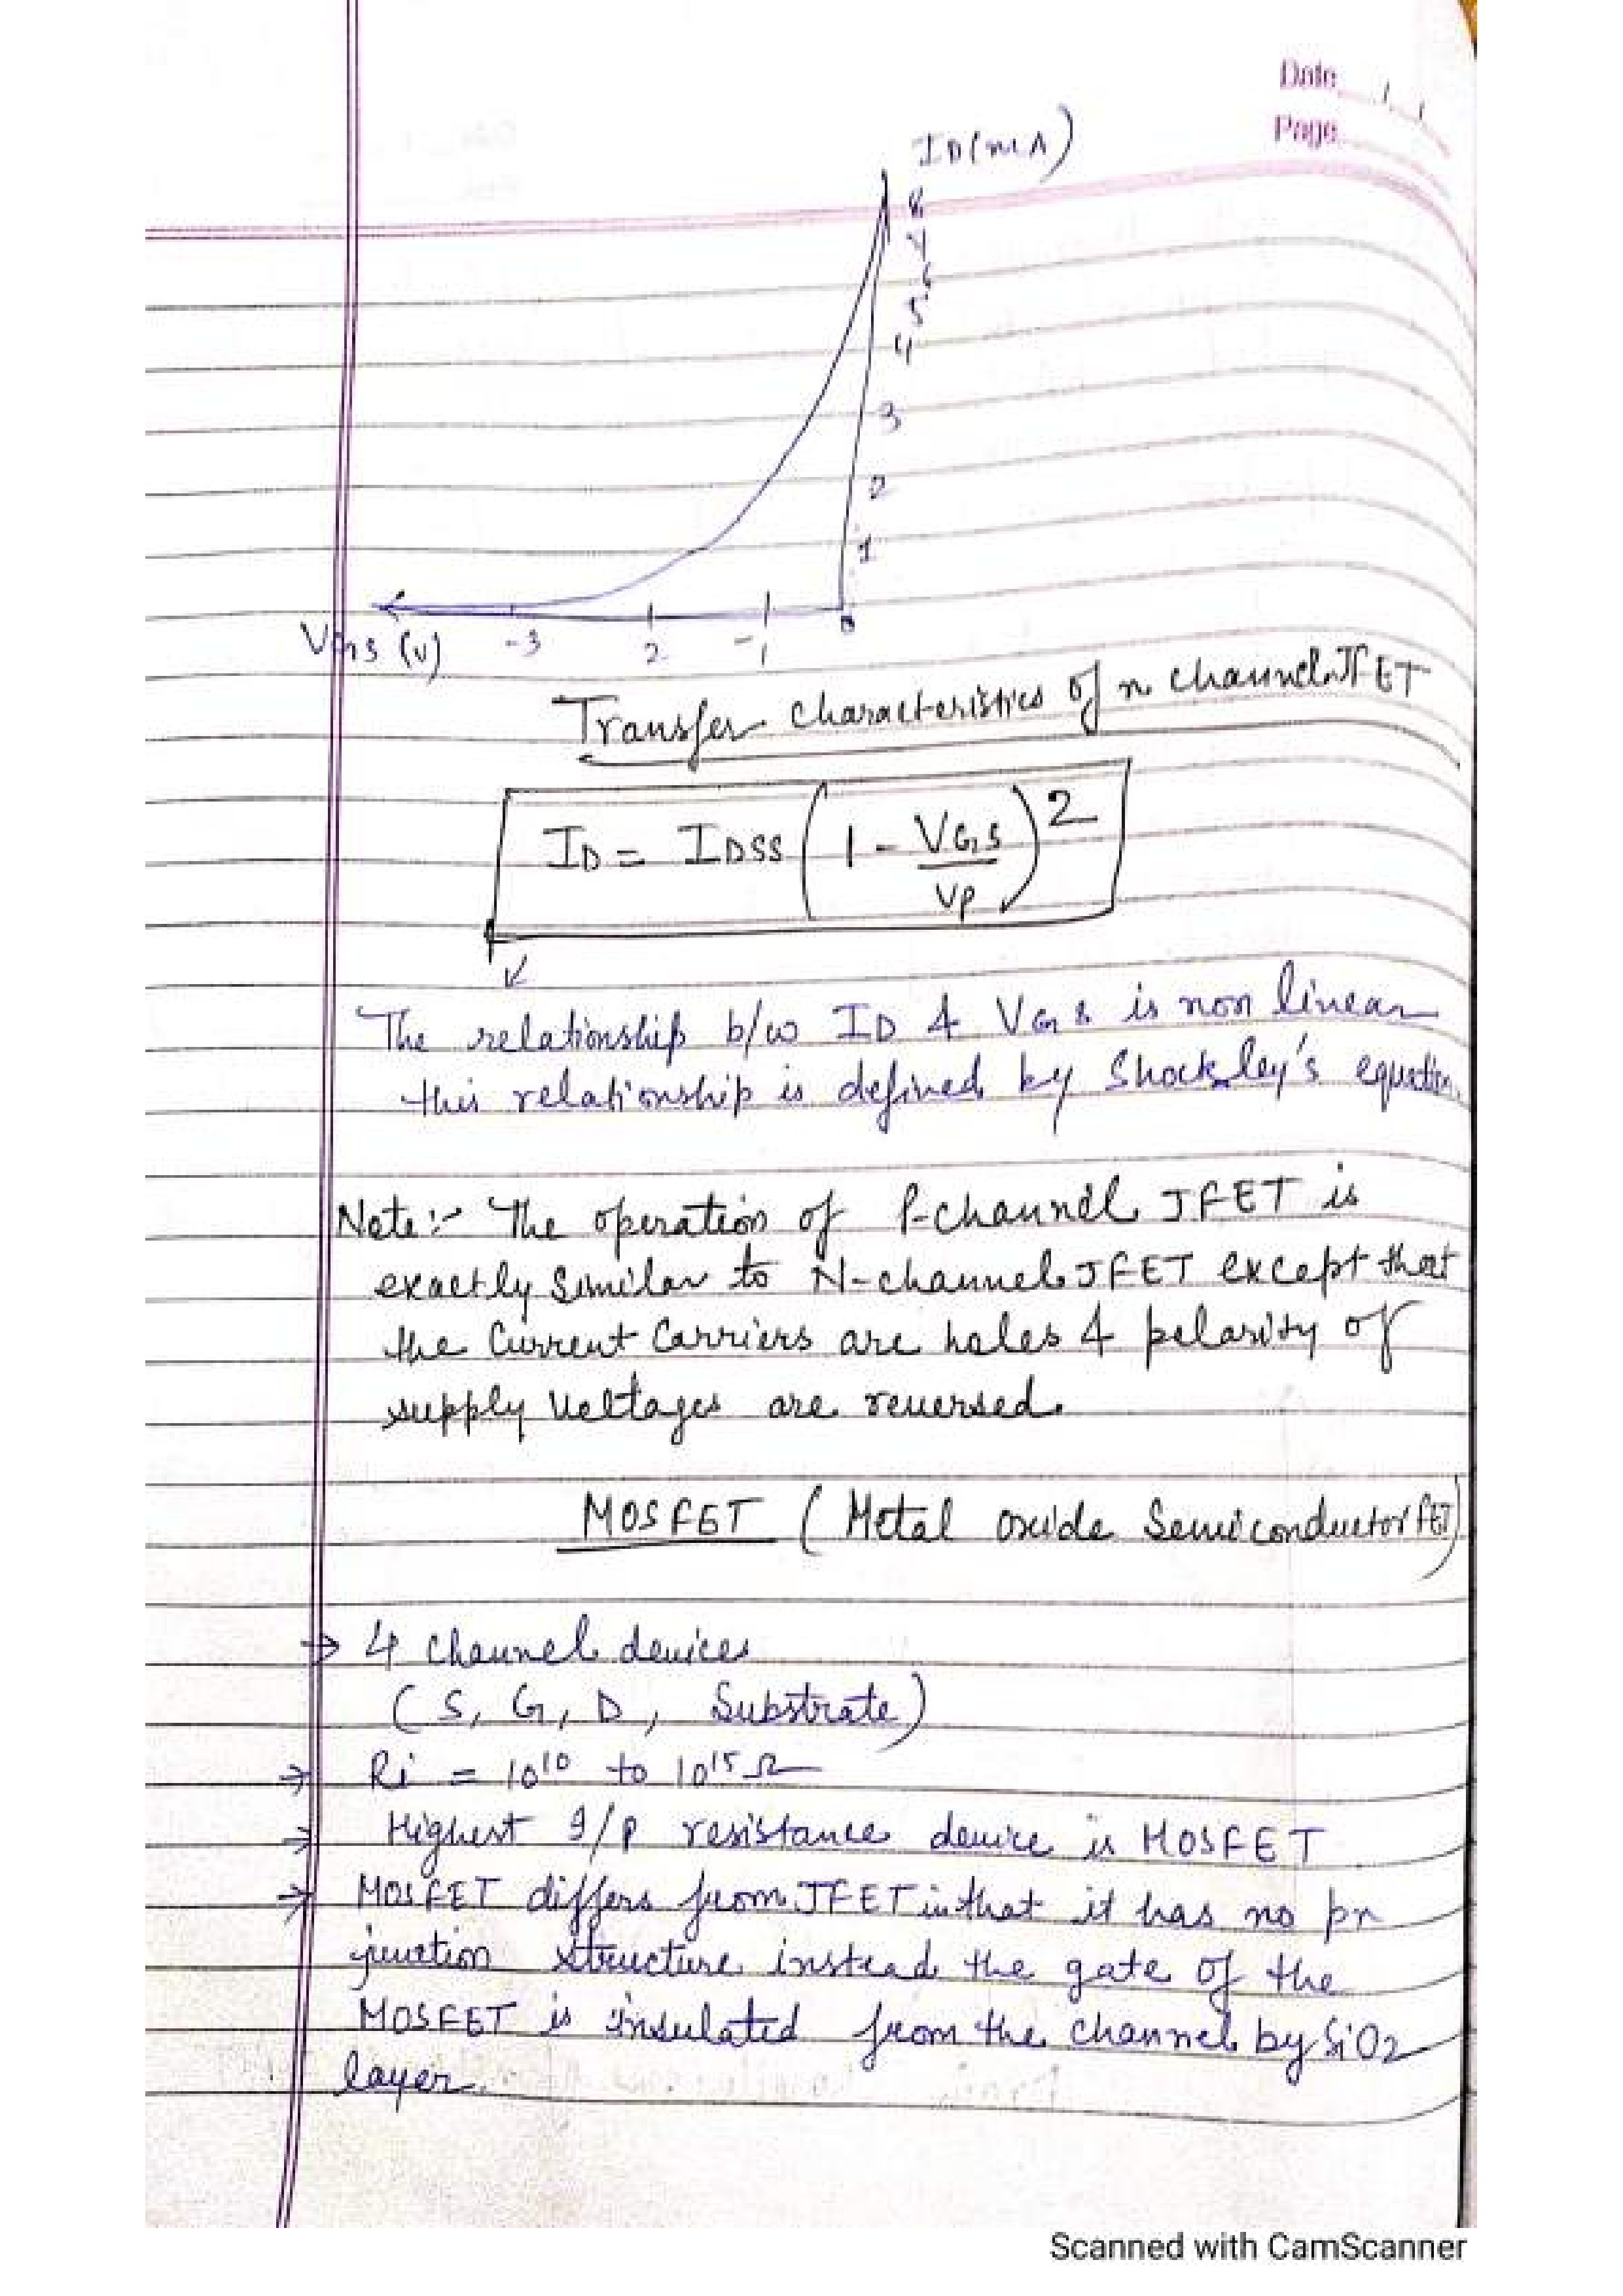 Date
Page
ID(mA)
8
7
6
5
4
3
2
1
0
VGS (V) -3 2 -1
Transfer characteristics of n channel JFET
ID = IDSS (1 - VGS/VP)2
The relationship b/w ID & VGS is non linear
this relationship is defined by Shockley's equation.
Note:- The operation of P-channel JFET is
exactly similar to N-channel JFET except that
the Current Carriers are holes & polarity of
supply voltages are reversed.
MOSFET (Metal oxide Semiconductor FET)
→ 4 Channel devices
(S, G, D, Substrate)
→ Ri = 10¹⁰ to 10¹⁵ Ω
→ Highest I/P resistance device is MOSFET
→ MOSFET differs from JFET in that it has no pn
junction structure instead the gate of the
MOSFET is insulated from the channel by SiO2
layer.
Scanned with CamScanner